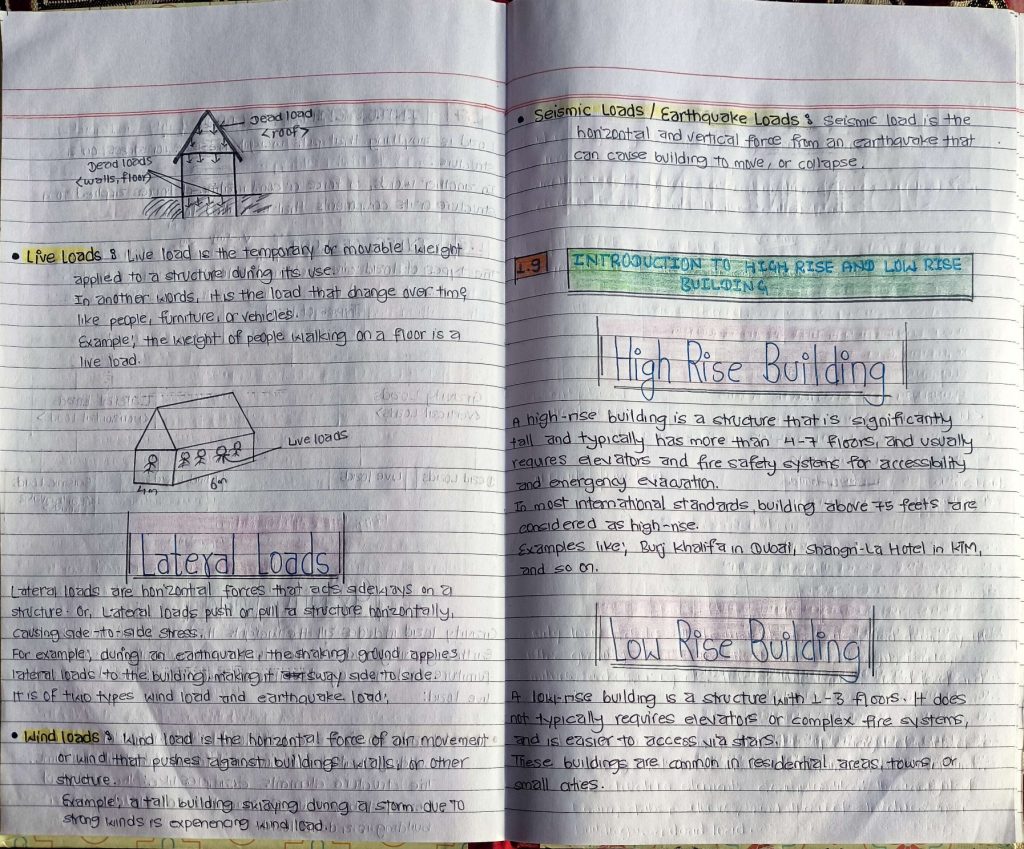 Dead load
<roof>
Dead loads
<walls, floor>
• Live Loads : Live load is the temporary or movable weight
applied to a structure during its use.
In another words, it is the load that change over time,
like people, furniture, or vehicles.
Example; the weight of people walking on a floor is a
live load.
Live loads
4m
6m
Lateral Loads
Lateral loads are horizontal forces that acts sideways on a
structure. Or, Lateral loads push or pull a structure horizontally,
causing side-to-side stress.
For example; during an earthquake, the shaking ground applies
lateral loads to the building, making it sway side to side.
It is of two types wind load and earthquake load;
• Wind loads : Wind load is the horizontal force of air movement
or wind that pushes against buildings, walls, or other
structure.
Example; a tall building swaying during a storm due to
strong winds is experiencing wind load.
• Seismic Loads / Earthquake Loads : Seismic load is the
horizontal and vertical force from an earthquake that
can cause building to move, or collapse.
1.9 INTRODUCTION TO HIGH RISE AND LOW RISE
BUILDING
High Rise Building
A high-rise building is a structure that is significanty
tall and typically has more than 4-7 floors, and usually
requres elevators and fire safety systems for accessibility
and emergency evacuation.
In most international standards, building above 75 feets are
considered as high-rise.
Examples like; Burj Khalifa in Dubai, Shangri-La Hotel in KTM,
and so on.
Low Rise Building
A low-rise building is a structure with 1-3 floors. It does
not typically requires elevators or complex fire systems,
and is easier to access via stairs.
These buildings are common in residential areas, towns, or
small cities.